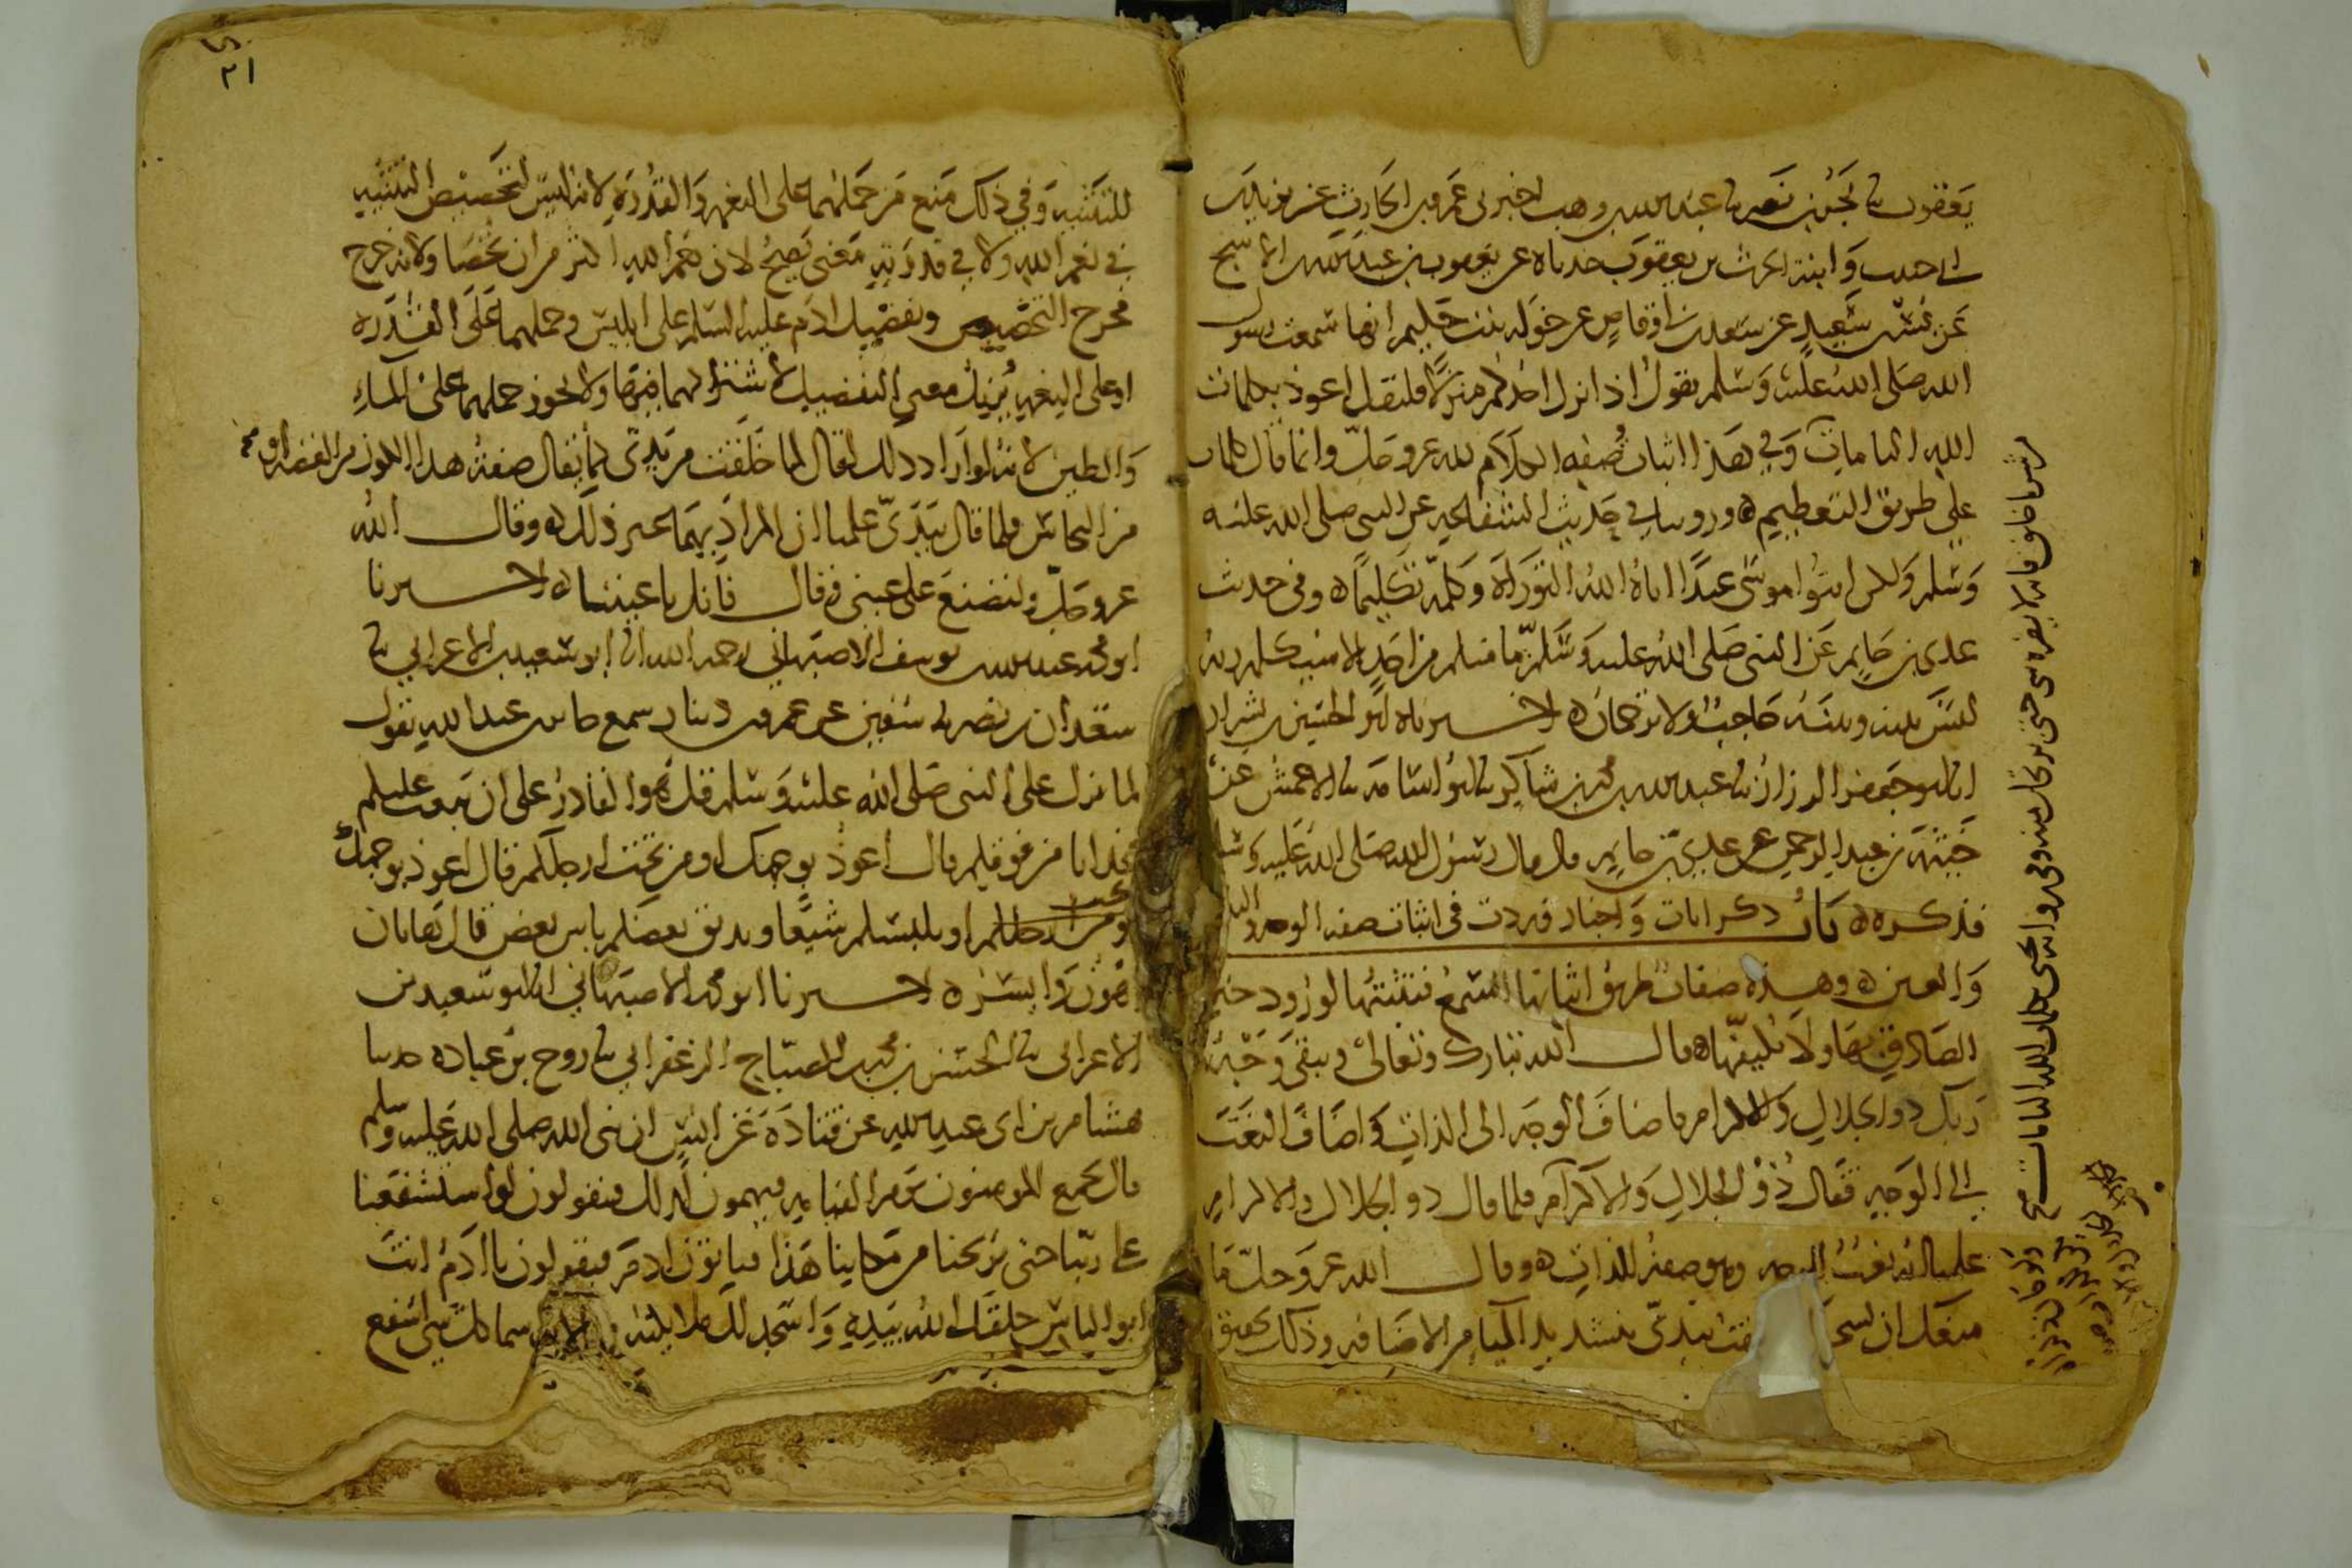 يعقوب نا بحر بن نصر نا عبد الله بن وهب اخبرني عمرو بن الحارث عن يزيد بن
ابي حبيب وابنه الحرث بن يعقوب حدثاه عن يعقوب بن عبد الله بن الاشج
عن بسر بن سعيد عن سعد بن ابي وقاص عن خولة بنت حكيم انها سمعت رسول
الله صلى الله عليه وسلم يقول اذا نزل احدكم منزلا فليقل اعوذ بكلمات
الله التامات وفي هذا اثبات صفه الكلام لله عز وجل وانما قال كلمات
على طريق التعظيم ه وروينا في حديث الشفاعه عن النبي صلى الله عليه
وسلم ولكن ايتوا موسى عبدا اتاه الله التوراة وكلمه تكليما ه وفي حديث
عدي بن حاتم عن النبي صلى الله عليه وسلم ما منكم من احد الا سيكلمه ربه
ليس بينه وبينه حاجب ولا ترجمان ه اخبرناه ابو الحسين بن بشران
انا ابو جعفر الرزاز نا عبد الله بن محمد بن شاكر نا ابو اسامه نا الاعمش عن
خيثمة بن عبد الرحمن عن عدي بن حاتم قال قال رسول الله صلى الله عليه وسلم
فذكره ه باب ذكر ايات واخبار وردت في اثبات صفه الوجه واليدين
والعين ه وهذه صفات طريق اثباتها السمع فنثبتها لورود خبر
الصادق بها ولا نكيفها ه قال الله تبارك وتعالى ويبقى وجه
ربك ذو الجلال والاكرام فاضاف الوجه الى الذات واضاف النعت
الى الوجه فقال ذو الجلال والاكرام فلما قال ذو الجلال والاكرام
علمنا انه نعت للوجه وهو صفة للذات ه وقال الله عز وجل ما
منعك ان تسجد خلقت بيدي بتشديد الياء من الاضافه وذلك تحقيق
شر ما خلق فانه لا يضره شي حتى يرتحل منه وفي رواية يحيى بكلمات الله التامات صح
٢١
للتثنيه وفي ذلك منع من حملهما على النعمه والقدره لانه ليس لتخصيص التثنيه
في نعم الله ولا في قدرته معنى يصح لان نعم الله اكثر من ان تحصا ولانه خرج
مخرج التخصيص وتفضيل ادم عليه السلم على ابليس وحملهما على القدره
او على النعمه يزيل معنى التفضيل لاشتراكهما فيها ولا يجوز حملهما على الماء
والطين لانه لو اراد ذلك لقال لما خلقت من يدي كما يقال صنعت هذا الكوز من الفضه او
من النحاس فلما قال بيدي علمنا ان المراد بهما غير ذلك ه وقال الله
عز وجل ولتصنع على عيني وقال فانك باعيننا ه اخبرنا
ابو محمد عبد الله بن يوسف الاصبهاني رحمه الله انا ابو سعيد بن الاعرابي نا
سعدان بن نصر نا سفين عن عمرو بن دينار سمع جابر بن عبد الله يقول
لما نزل على النبي صلى الله عليه وسلم قل هو القادر على ان يبعث عليكم
عذابا من فوقكم قال اعوذ بوجهك او من تحت ارجلكم قال اعوذ بوجهك
او يلبسكم شيعا ويذيق بعضكم باس بعض قال هاتان
اهون وايسر ه اخبرنا ابو محمد الاصبهاني انا ابو سعيد بن
الاعرابي نا الحسن بن محمد بن الصباح الزعفراني نا روح بن عباده حدثنا
هشام بن ابي عبد الله عن قتادة عن انس ان نبي الله صلى الله عليه وسلم
قال يجمع المومنون يوم القيامه فيهمون لذلك فيقولون لو استشفعنا
على ربنا حتى يريحنا من مكاننا هذا فياتون ادم فيقولون يا ادم انت
ابو الناس خلقك الله بيده واسجد لك ملايكته وعلمك اسما كل شي اشفع